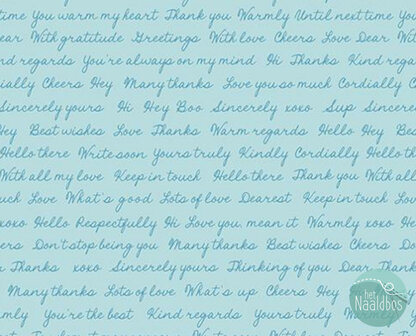 time You warm my heart Thank you Warmly Until next time You
ear With gratitude Greetings With love Cheers Love Dear Wit
nd regards You're always on my mind Hi Thanks Kind regar
ially Cheers Hey Many thanks Love you so much Cordially C
Sincerely yours Hi Hey Boo Sincerely xoxo Sup Sincere
Hey Best wishes Love Thanks Warm regards Hello Hey Bes
Hello there Write soon Yours truly Kindly Cordially Hello th
With all my love Keep in touch Hello there Thank you With all
uch Love What's good Lots of love Dearest Keep in touch Lov
xoxo Hello Respectfully Hi Love you, mean it Warmly xoxo He
ers Don't stop being you Many thanks Best wishes Cheers Do
r Thanks xoxo Sincerely yours Thinking of you Dear Thank
Many thanks Lots of love What's up Cheers Hey
mly You're the best Kind regards Yours truly Warmly
het
Naaldbos